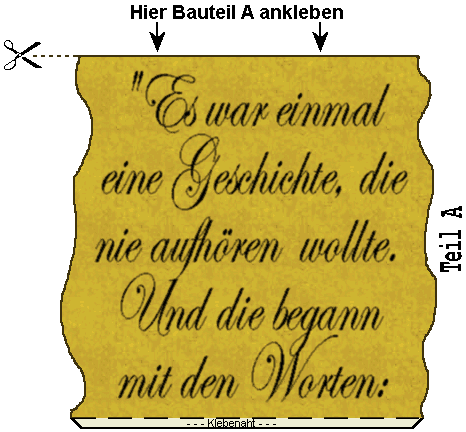 Hier Bauteil A ankleben
"Es war einmal
eine Geschichte, die
nie aufhören wollte.
Und die begann
mit den Worten:
Teil A
- - - Klebenaht - - -